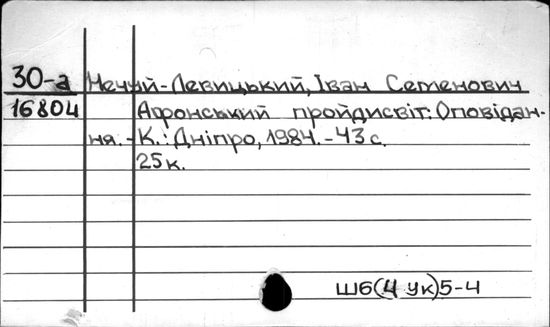 30-а Нечуй-Левицький, Іван Семенович
16804 Афонський пройдисвіт: Оповідан-
ня. - К.: Дніпро, 1984. - 43 с.
25 к.
Ш6(4 Ук)5-4